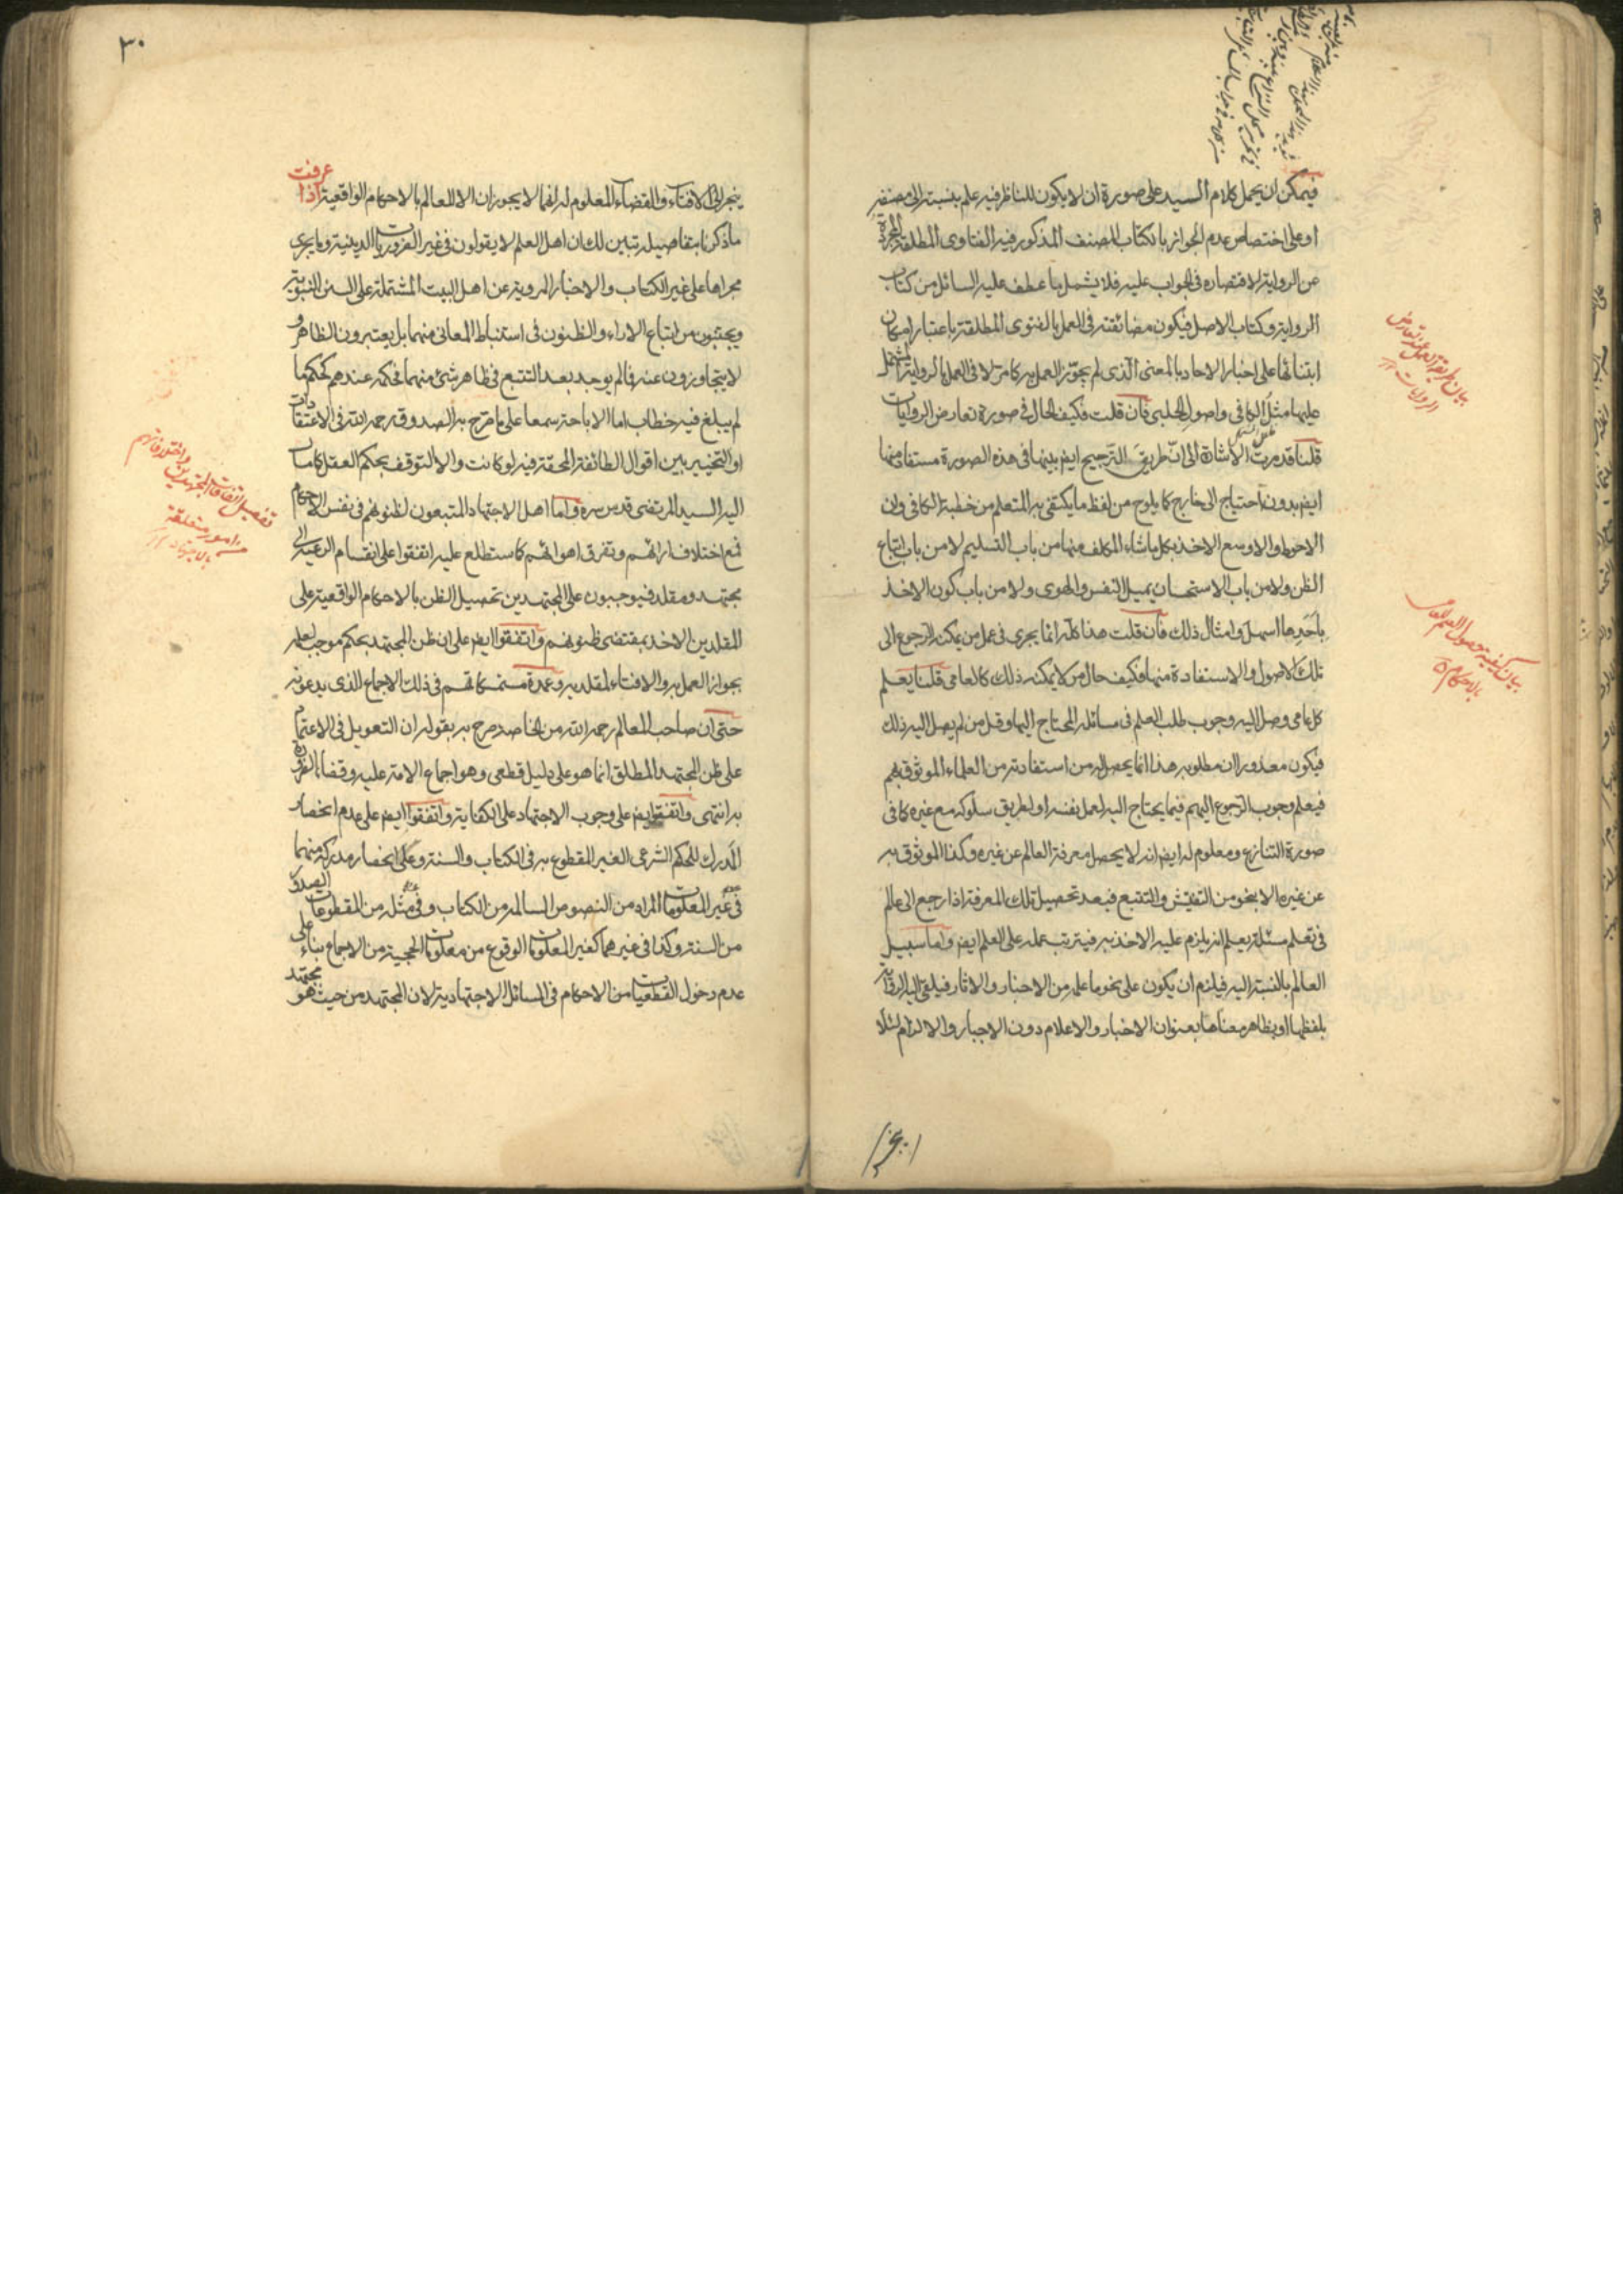 فيمكن ان يحمل كلام السيد على صورة ان لا يكون للناظر فيه علم بنسبته الى مصنفه
او على اختصاص عدم الجواز بالكتاب المصنف المذكور فيه الفتاوى المطلقة المجردة
عن الرواية لاقتصاره فى الجواب عليه فلا يشمل ما عطف عليه السائل من كتاب
الرواية وكتاب الاصل فيكون مضائقته فى العمل بالفتوى المطلقة باعتبار امكان
ابتنائها على اخبار الاحاد بالمعنى الذى لم يجوّز العمل به كما مرّ لا فى العمل بالرواية المشتمل
عليها مثل الكافى واصول الحلبى فان قلت فكيف الحال فى صورة تعارض الروايات
قلنا قد مرت الاشارة الى انّ طريق الترجيح ايض بينها فى هذه الصورة مستفاد منها
ايض بدون احتياج الى خارج كما يلوح من لفظ ما يكتفى به المتعلم من خطبة الكافى وان
الاحوط والاوسع الاخذ بكل ما شاء المكلف منها من باب التسليم لا من باب اتباع
الظن ولا من باب الاستحسان بميل النفس والهوى ولا من باب كون الاخذ
باحدها اسهل وامثال ذلك فان قلت هذا كله انما يجرى فى عمل من يمكنه الرجوع الى
تلك الاصول والاستفادة منها فكيف حال من لا يمكنه ذلك كالعامى قلنا يعلم
كل عامى وصل اليه وجوب طلب العلم فى مسائله المحتاج اليها وقل من لم يصل اليه ذلك
فيكون معذورا ان مطلوبه هذا انما يحصل له من استفادته من العلماء الموثوق بهم
فيعلم وجوب الرجوع اليهم فيما يحتاج اليه لعمل نفسه او لطريق سلوكه مع غيره كما فى
صورة التنازع ومعلوم له ايض انه لا يحصل معرفة العالم عن غيره وكذا الموثوق به
عن غيره الا بنحو من التفتيش والتتبع فبعد تحصيل تلك المعرفة اذا رجع الى عالم
فى تعلم مسئلة يعلم انه يلزم عليه الاخذ به فيترتب عمله على العلم ايض واما سبيل
العالم بالنسبة اليه فيلزم ان يكون على نحو ما علم من الاخبار والاثار فيلقى اليه الرواية
بلفظها او بظاهر معناها بعنوان الاخبار والاعلام دون الاجبار والالزام لئلا
بيان طريقة العمل عند تعارض
الروايات
بيان كيفية حصول العلم للعامى
بالاحكام
٣٠
ينجر الى الافتاء والقضاء المعلوم له انهما لا يجوزان الا للعالم بالاحكام الواقعية اذا عرفت
ما ذكرنا بتفاصيله تبين لك ان اهل العلم لا يقولون فى غير الضروريات الدينية وما يجرى
مجراها على غير الكتاب والاخبار المروية عن اهل البيت المشتملة على السنن النبوية
ويجتنبون من اتباع الاراء والظنون فى استنباط المعانى منهما بل يعتبرون الظاهر و
لا يتجاوزون عنه فما لم يوجد بعد التتبع فى ظاهر شئ منهما فحكمه عندهم كحكم ما
لم يبلغ فيه خطاب اما الاباحة سمعا على ما صرح به الصدوق رحمه الله فى الاعتقادات
او التخيير بين اقوال الطائفة المحقة فيه لو كانت والا التوقف بحكم العقل كما مال
اليه السيد المرتضى قدس سره واما اهل الاجتهاد المتبعون لظنونهم فى نفس الاحكام
فمع اختلاف ارائهم وتفرق اهوائهم كما ستطلع عليه اتفقوا على انقسام الرعية الى
مجتهد ومقلد فيوجبون على المجتهدين تحصيل الظن بالاحكام الواقعية وعلى
المقلدين الاخذ بمقتضى ظنونهم واتفقوا ايض على ان ظن المجتهد بحكم موجب لعلمه
بجواز العمل به والافتاء لمقلديه وعمدة متمسكاتهم فى ذلك الاجماع الذى يدعونه
حتى ان صاحب المعالم رحمه الله من الخاصه صرح به بقوله ان التعويل فى الاعتماد
على ظن المجتهد المطلق انما هو على دليل قطعى وهو اجماع الامة عليه وقضاء الضرورة
به انتهى واتفقوا ايض على وجوب الاجتهاد على الكفاية واتفقوا ايض على عدم انحصار
المدرك للحكم الشرعى الغير المقطوع به فى الكتاب والسنة وعلى انحصار مدركه منهما
فى غير المعلومات المراد من النصوص السالمة من الكتاب وفى مثله من المقطوعات الصدور
من السنة وكذا فى غيرهما كغير المعلومات الوقوع من معلومات الحجية من الاجماع بناء على
عدم دخول القطعيات من الاحكام فى المسائل الاجتهادية لان المجتهد من حيث هو مجتهد
تفصيل اتفاقات المجتهدين واختلافاتهم
فى امور متعلقة
بالاجتهاد